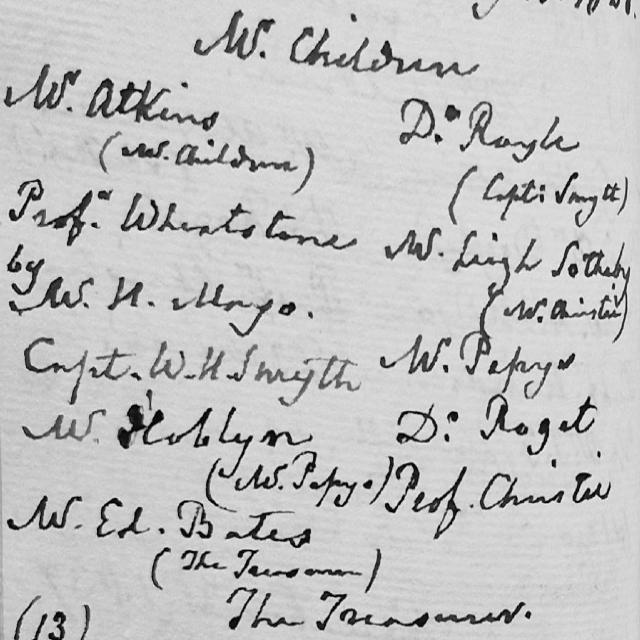 Mr. Children
Mr. Atkins
Dr. Royle
(Mr. Children)
(Capt: Smyth)
Profr. Wheatstone
Mr. Leigh Sotheby
by
Mr. H. Mayo.
(Mr. Christie)
Capt. W. H. Smyth
Mr. Pepys
Mr. Hoblyn
Dr. Roget
(Mr. Pepys)
Prof. Christie
Mr. Ed. Bates
(The Treasurer)
The Treasurer.
(13)